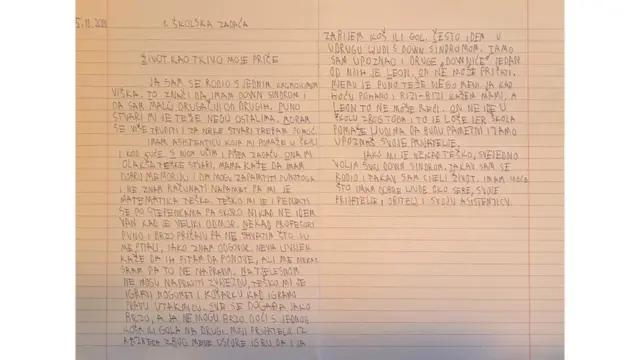 5.11.20
1. ŠKOLSKA ZADAĆA
ŽIVOT KAO TKIVO MOJE PRIČE
JA SAM SE RODIO S JEDNIM KROMOSOMOM
VIŠKA. TO ZNAČI DA IMAM DOWN SINDROM I
DA SAM MALO DRUGAČIJI OD DRUGIH. PUNO
STVARI MI JE TEŽE NEGO OSTALIMA. MORAM
SE VIŠE TRUDITI I ZA NEKE STVARI TREBAM POMOĆ.
IMAM ASISTENTICU KOJA MI POMAŽE U ŠKOLI
I KOD KUĆE S NJOM UČIM I PIŠEM ZADAĆU. ONA MI
OLAKŠA TEŠKE STVARI. MAMA KAŽE DA IMAM
DOBRU MEMORIJU I DA MOGU ZAPAMTITI PUNO TOGA
I NE ZNAM RAČUNATI NAPAMET PA MI JE
MATEMATIKA TEŠKA. TEŠKO MI JE I PENJATI
SE PO STEPENICAMA PA SKORO NIKAD NE IDEM
VAN KAD JE VELIKI ODMOR. NEKAD PROFESORI
PUNO I BRZO PRIČAJU PA NE SHVATIM ŠTO SU
ME PITALI, IAKO ZNAM ODGOVOR. NEVIA UVIJEK
KAŽE DA IH PITAM DA PONOVE, ALI ME NEKAD
SRAM PA TO NE NAPRAVIM. NA TJELESNOM
NE MOGU NAPRAVITI ZVIJEZDU, TEŠKO MI JE
IGRATI NOGOMET I KOŠARKU KAD IGRAMO
PRAVU UTAKMICU. SVE SE DOGAĐA JAKO
BRZO, A JA NE MOGU BRZO DOĆI S JEDNOG
KOŠA ILI GOLA NA DRUGI. MOJI PRIJATELJI IZ
RAZREDA ZBOG MENE USPORE IGRU DA I JA
ZABIJEM KOŠ ILI GOL. ČESTO IDEM U
UDRUGU LJUDI S DOWN SINDROMOM. TAMO
SAM UPOZNAO I DRUGE „DOWNIĆE" JEDAN
OD NJIH JE LEON. ON NE MOŽE PRIČATI.
NJEMU JE PUNO TEŽE NEGO MENI. JA KAD
HOĆU POHANO I RIZI-BIZI KAŽEM MAMI, A
LEON TO NE MOŽE REĆI. ON NE IDE U
ŠKOLU ZA ROSTOM I TO JE LOŠE JER ŠKOLA
POMAŽE LJUDIMA DA BUDU PAMETNI I TAMO
UPOZNAŠ SVOJE PRIJATELJE.
IAKO MI JE NEKAD TEŠKO, SVEJEDNO
VOLIM SVOJ DOWN SINDROM. TAKAV SAM SE
RODIO I TAKAV SAM CIJELI ŽIVOT. IMAM SREĆE
ŠTO IMAM DOBRE LJUDE OKO SEBE, SVOJE
PRIJATELJE, OBITELJ I SVOJU ASISTENTICU.